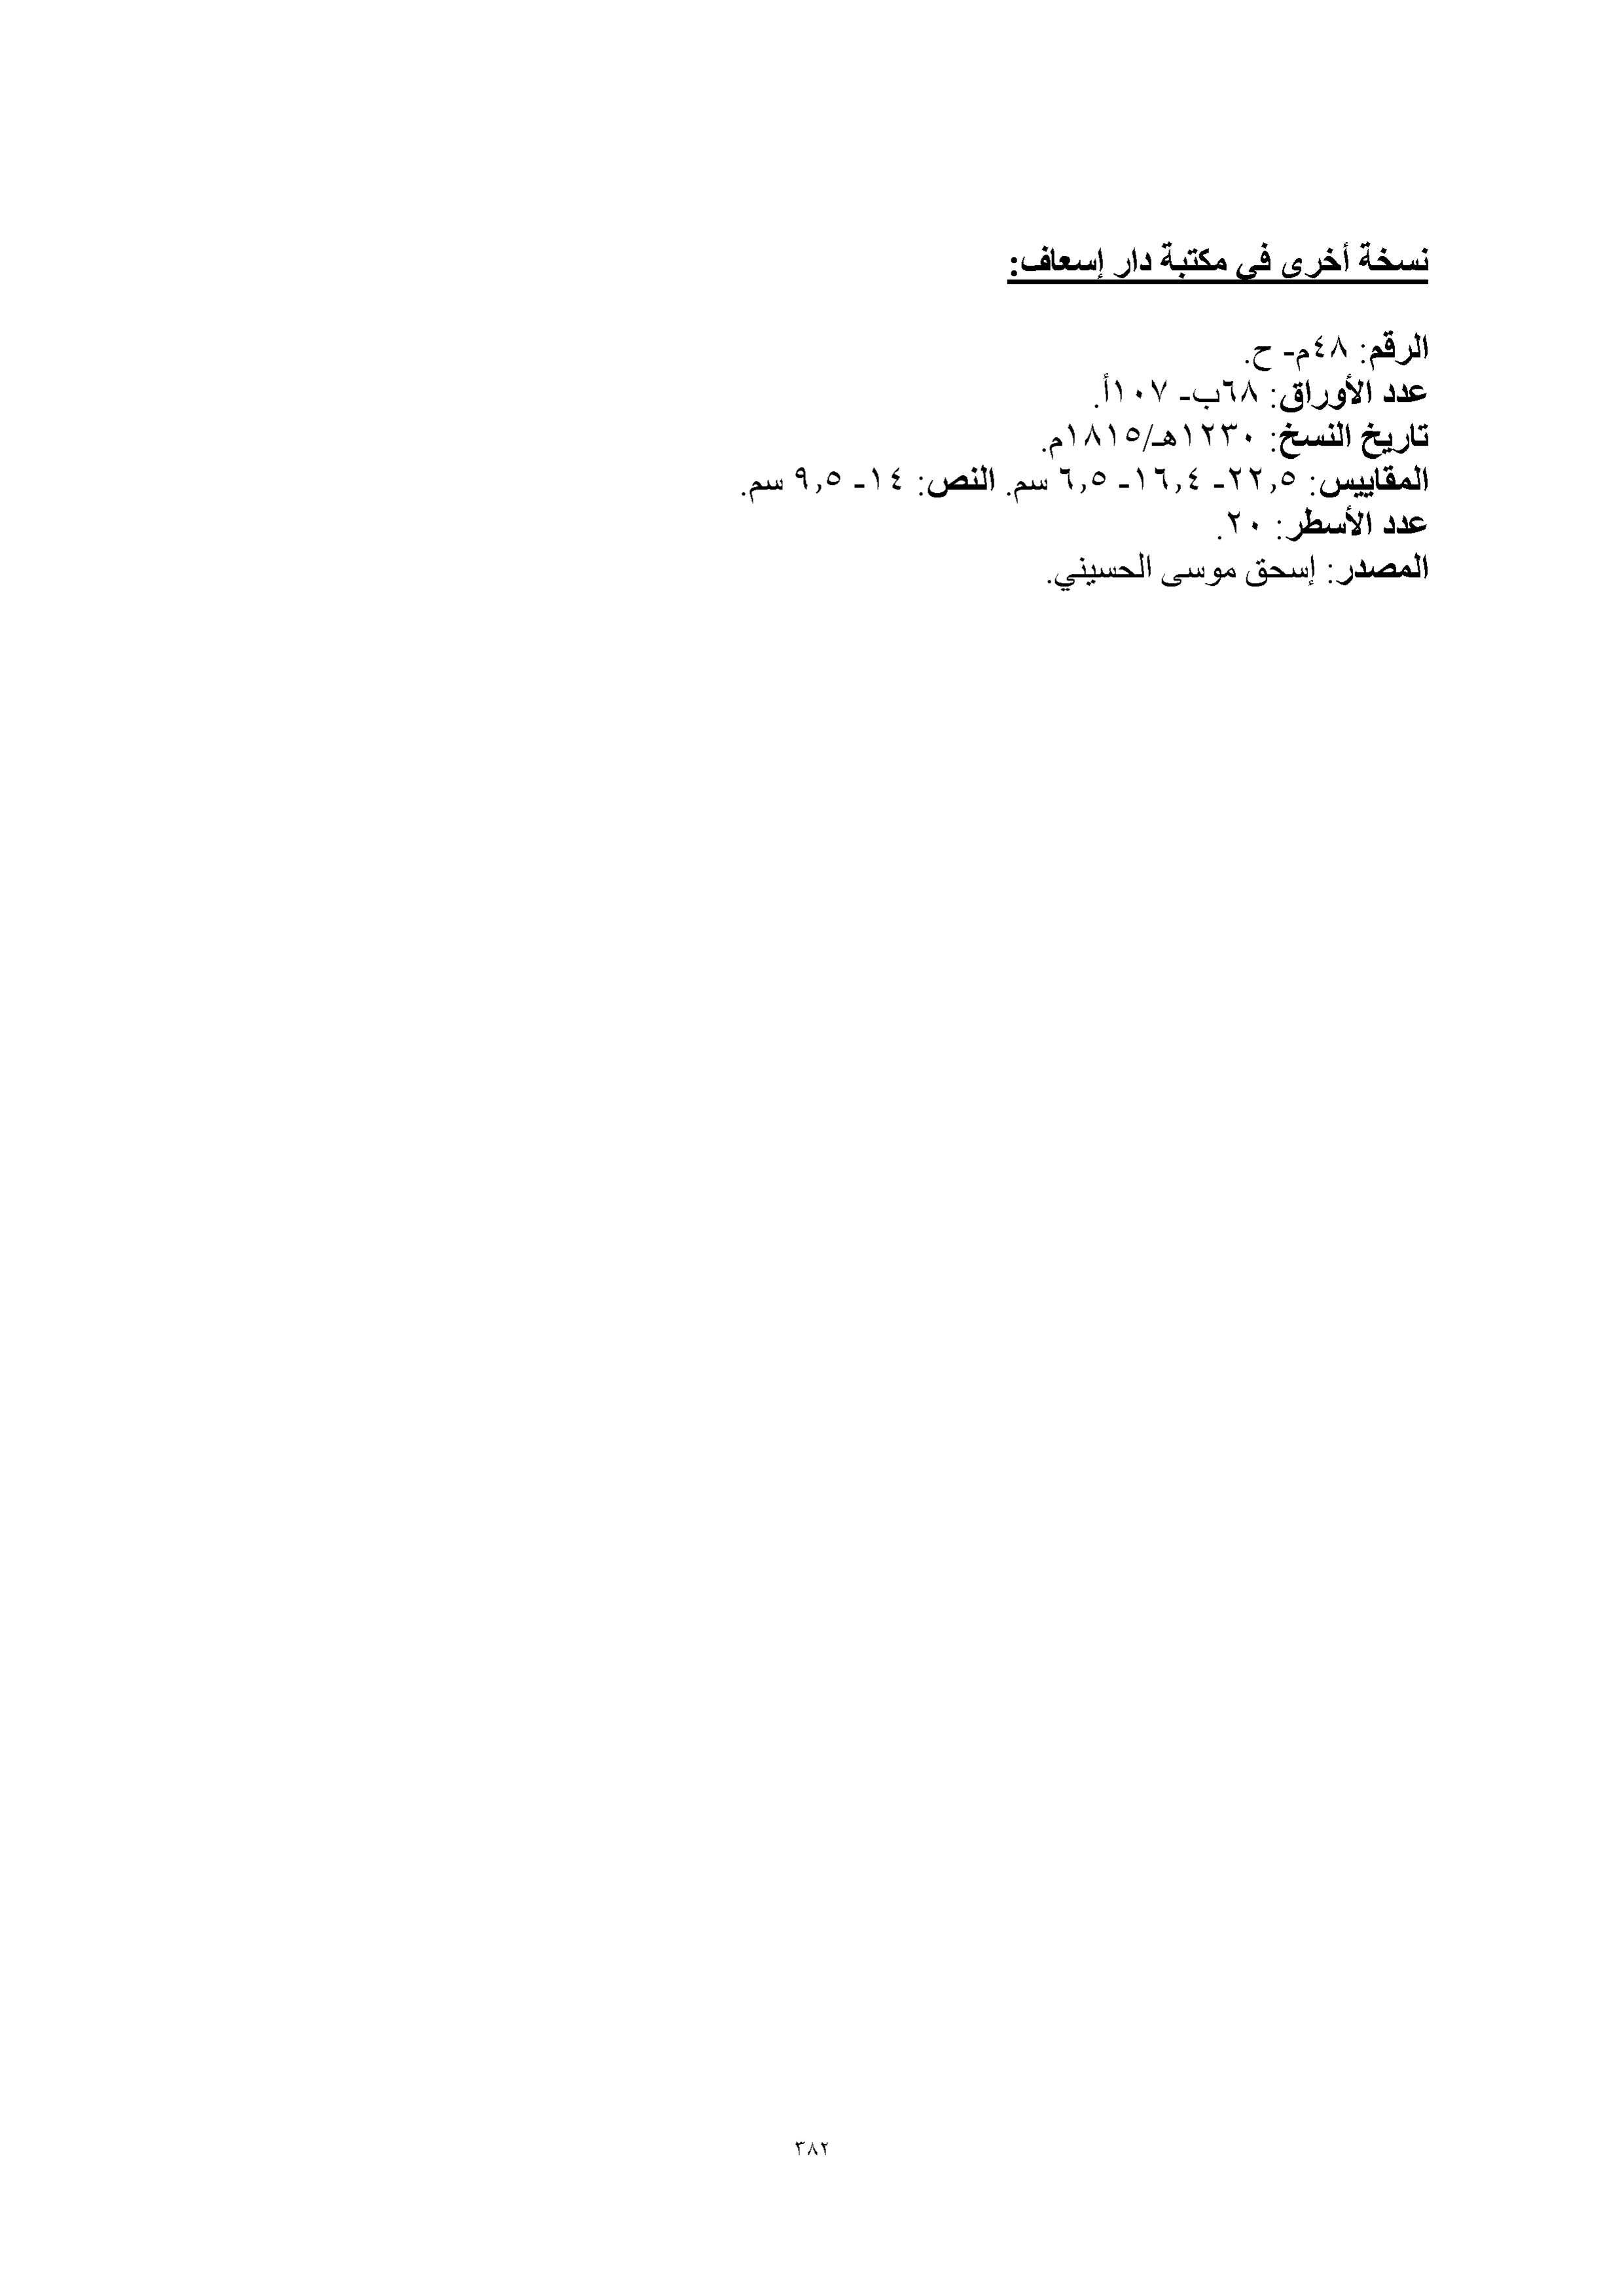 نسخة أخرى في مكتبة دار إسعاف:
الرقم: ٤٨م- ح.
عدد الأوراق: ٦٨ب- ١٠٧أ.
تاريخ النسخ: ١٢٣٠هـ/١٨١٥م.
المقاييس: ٢٢,٥- ١٦,٤- ٦,٥ سم. النص: ١٤- ٩,٥ سم.
عدد الأسطر: ٢٠.
المصدر: إسحق موسى الحسيني.
٣٨٢